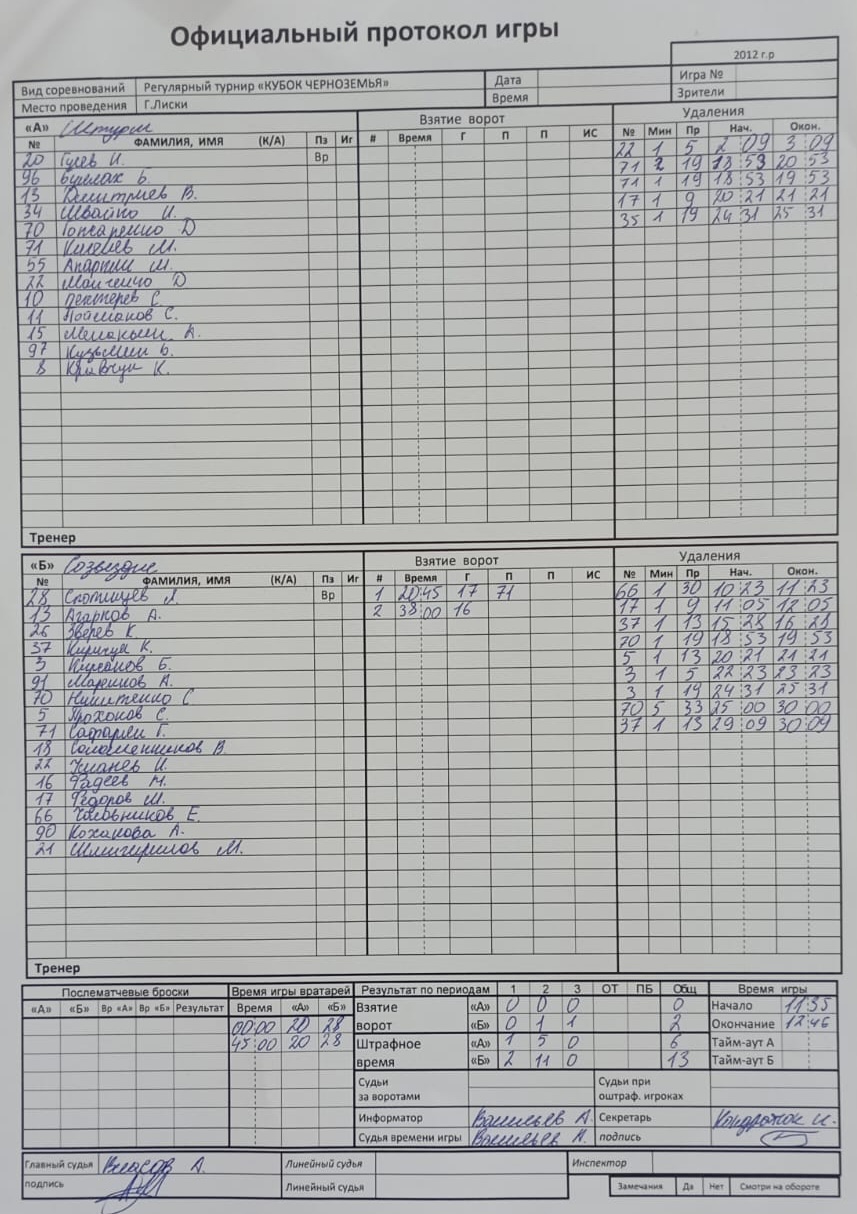 Официальный протокол игры
2012 г.р
Вид соревнований Регулярный турнир «КУБОК ЧЕРНОЗЕМЬЯ» Дата Игра №
Место проведения Г.Лиски Время Зрители
«А» Штурм Взятие ворот Удаления
№ ФАМИЛИЯ, ИМЯ (К/А) Пз Иг # Время Г П П ИС № Мин Пр Нач. Окон.
20 Гуев И. Вр 22 1 5 2 09 3 09
96 Бурлак Б. 71 2 19 18 53 20 53
13 Дмитриев В. 71 1 19 18 53 19 53
34 Швайко И. 17 1 9 20 21 21 21
70 Гончаренко Д 35 1 19 24 31 25 31
71 М.
55 Апаркин М.
22 Манченко Д
10 Пехтерев С.
11 Пойманов С.
15 К.
97 Кузьмин Б.
8 Кравчук К.
Тренер
«Б» Созвездие Взятие ворот Удаления
№ ФАМИЛИЯ, ИМЯ (К/А) Пз Иг # Время Г П П ИС № Мин Пр Нач. Окон.
28 Л. Вр 1 20:45 17 71 66 1 30 10 23 11 23
13 Агарков А. 2 38:00 16 17 1 9 11 05 12 05
26 Зверев К. 37 1 13 15 28 16 28
37 Киричук К. 70 1 19 18 53 19 53
3 Курсанов Б. 5 1 13 20 21 21 21
91 Маринов А. 3 1 5 22 23 23 23
70 Никитенко С 3 1 19 24 31 25 31
5 Прохоров С. 70 5 33 25 00 30 00
71 Сафарян Г. 37 1 13 29 09 30 09
18 Соломенников В.
22 И.
16 Фадеев М.
17 Федоров М.
66 Часовников Е.
90 Коханова А.
21 М.
Тренер
Послематчевые броски Время игры вратарей Результат по периодам 1 2 3 ОТ ПБ Общ Время игры
«А» «Б» Вр «А» Вр «Б» Результат Время «А» «Б» Взятие ворот «А» 0 0 0 0 Начало 11:35
00:00 20 28 «Б» 0 1 1 2 Окончание 12:46
45:00 20 28 Штрафное время «А» 1 5 0 6 Тайм-аут А
«Б» 2 11 0 13 Тайм-аут Б
Судьи за воротами Судьи при оштраф. игроках
Информатор Васильев А. Секретарь Кондратюк И.
Судья времени игры Васильев А. подпись
Главный судья Власов А. Линейный судья Инспектор
подпись Линейный судья Замечания Да Нет Смотри на обороте